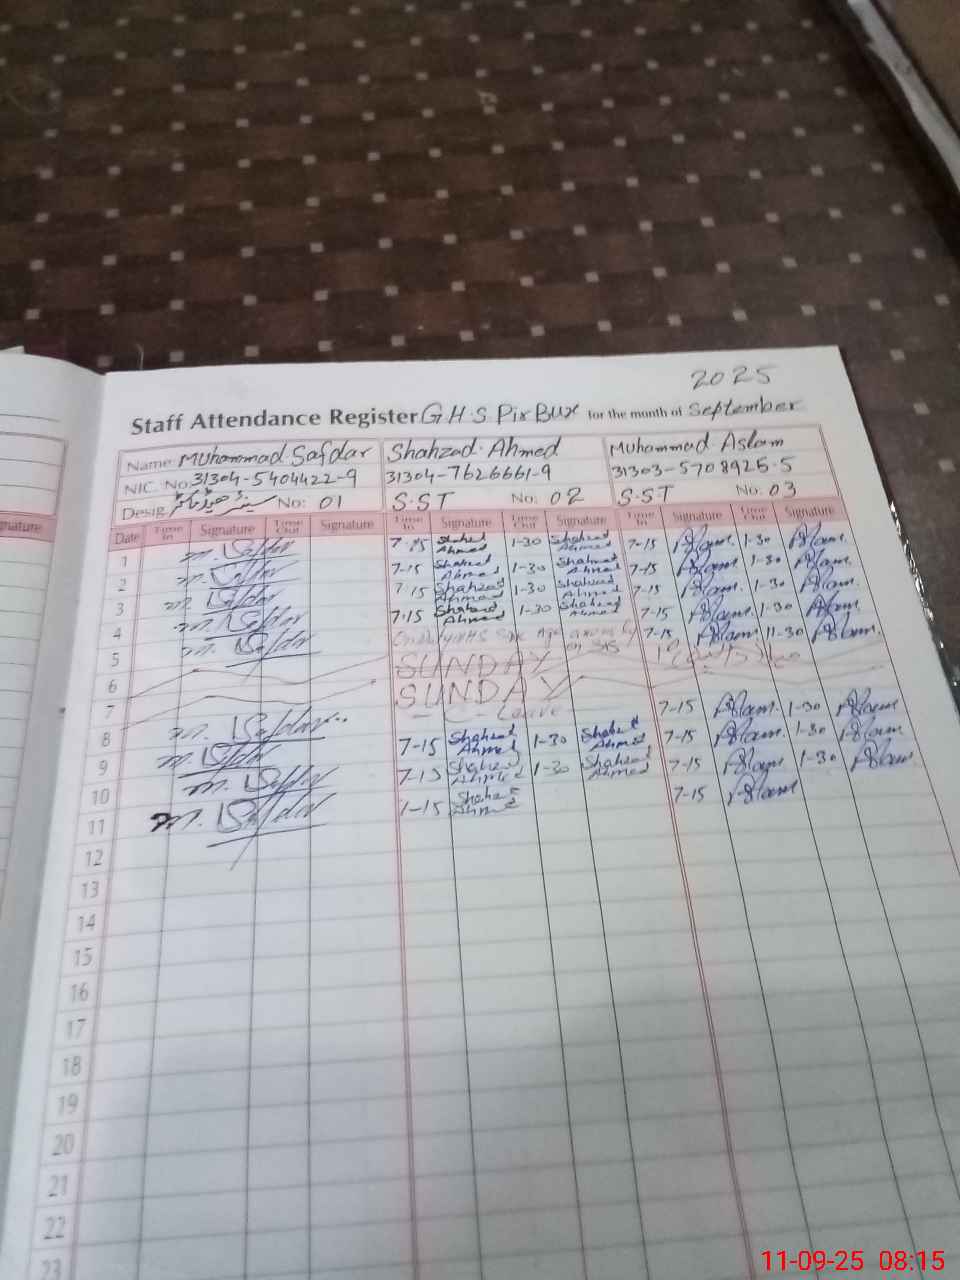 2025
Staff Attendance Register G.H.S Pir Bux for the month of September
Name Muhammad Safdar Shahzad Ahmed Muhammad Aslam
NIC. No. 31304-5404422-9 31304-7626661-9 31303-5708925-5
Desig. سینئر ہیڈ ماسٹر No: 01 S.ST No: 02 S.ST No: 03
Date Time In Signature Time Out Signature Time In Signature Time Out Signature Time In Signature Time Out Signature
1 M. Safdar 7-15 Shahzad Ahmed 1-30 Shahzad Ahmed 7-15 Aslam 1-30 Aslam
2 M. Safdar 7-15 Shahzad Ahmed 1-30 Shahzad Ahmed 7-15 Aslam 1-30 Aslam
3 M. Safdar 7-15 Shahzad Ahmed 1-30 Shahzad Ahmed 7-15 Aslam 1-30 Aslam
4 M. Safdar 7-15 Shahzad Ahmed 1-30 Shahzad Ahmed 7-15 Aslam 1-30 Aslam
5 M. Safdar on SIS 7-15 Aslam 11-30 Aslam
6 SUNDAY
7 SUNDAY
8 M. Safdar C-Leave 7-15 Aslam 1-30 Aslam
9 M. Safdar 7-15 Shahzad Ahmed 1-30 Shahzad Ahmed 7-15 Aslam 1-30 Aslam
10 M. Safdar 7-15 Shahzad Ahmed 1-30 Shahzad Ahmed 7-15 Aslam 1-30 Aslam
11 M. Safdar 1-15 Shahzad Ahmed 7-15 Aslam
12
13
14
15
16
17
18
19
20
21
22
23
gnature
11-09-25 08:15